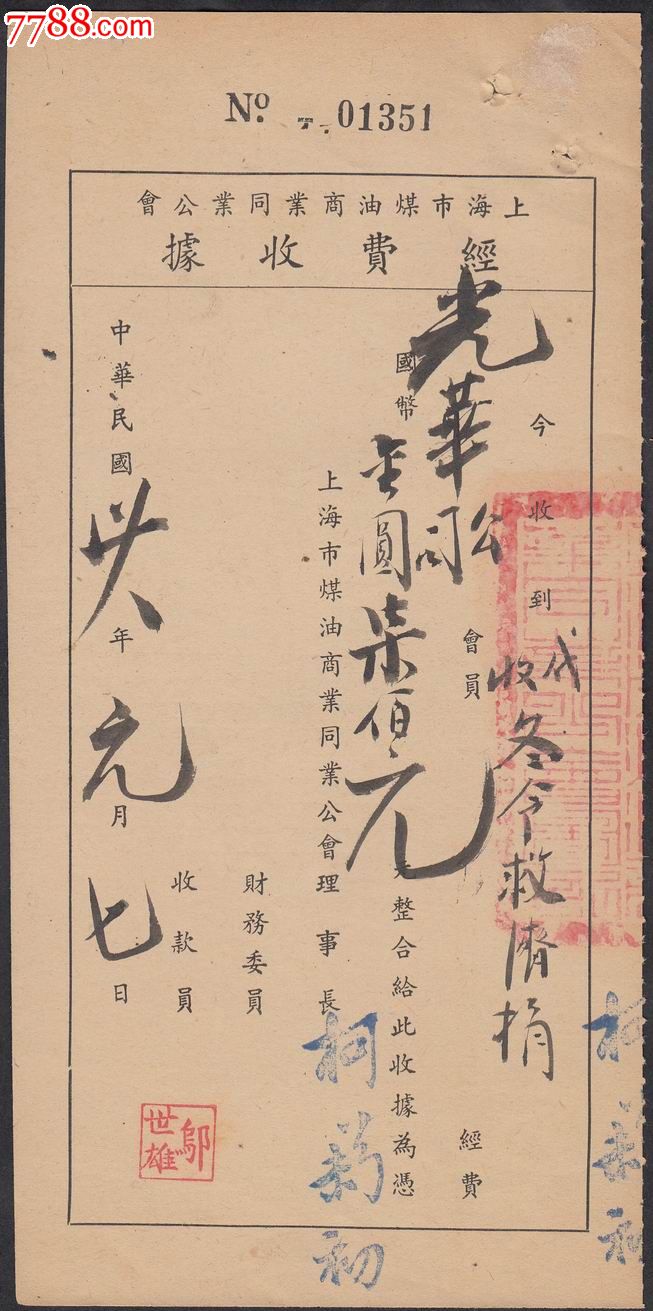 7788.com
No. 01351
上海市煤油商業同業公會
經費收據
今收到
代收冬令救濟捐
光華公司
會員
經費
國幣
金圓柒佰元
整合給此收據為憑
上海市煤油商業同業公會理事長
財務委員
收款員
鄔世雄
中華民國卅八年元月七日